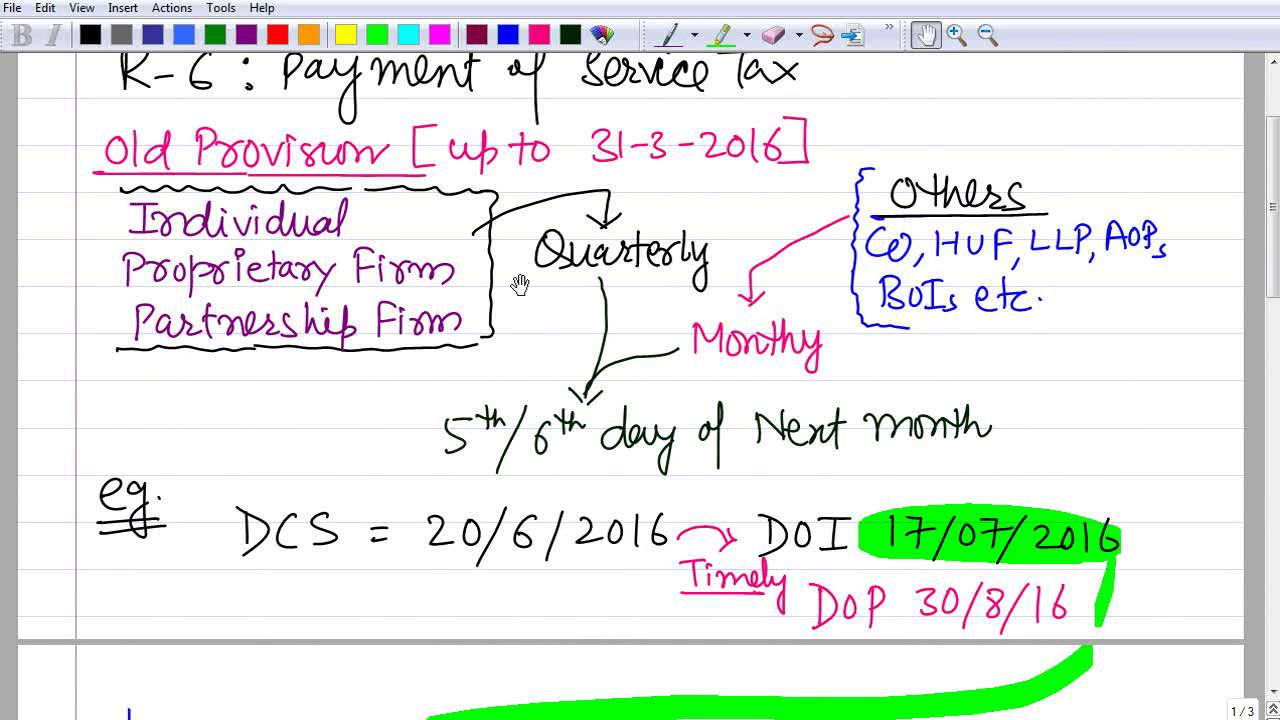 File Edit View Insert Actions Tools Help
B I
R-6 : Payment of Service Tax
Old Provision [up to 31-3-2016]
Individual
Proprietary Firm
Partnership Firm
Quarterly
Others
Co, HUF, LLP, AOPs
BOIs etc.
Monthy
5th/6th day of Next month
eg.
DCS = 20/6/2016 DOI 17/07/2016
Timely
DOP 30/8/16
1 / 3